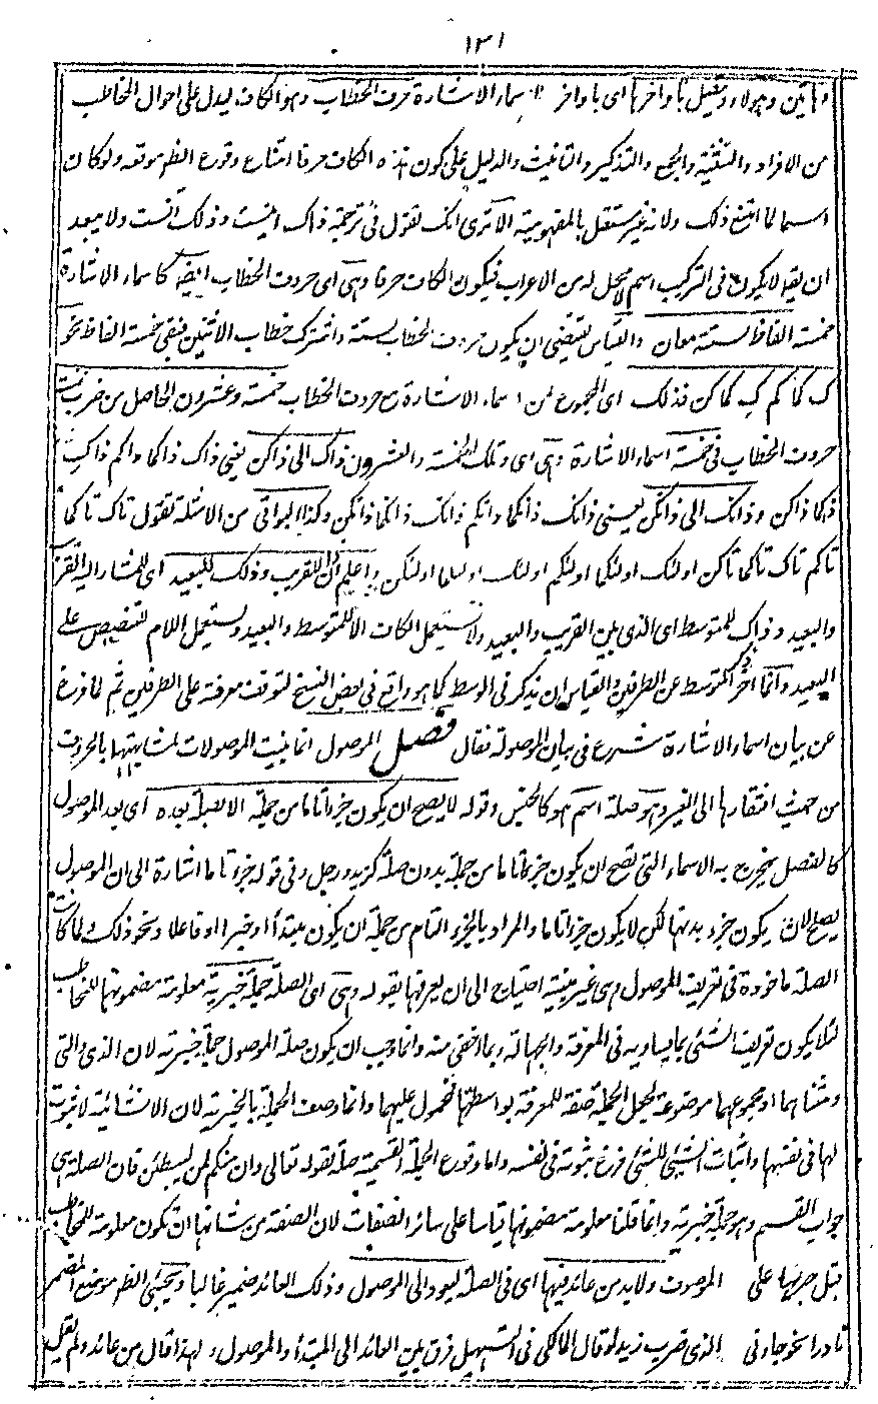 ١٣١
وهاتين وهؤلاء ويتصل باواخرها اى باواخر اسماء الاشارة حرف الخطاب وهو الكاف ليدل على احوال المخاطب
من الافراد والتثنية والجمع والتذكير والتانيث والدليل على كون هذه الكاف حرفا امتناع وقوع الظاهر موقعه ولو كان
اسما لما امتنع ذلك ولانه غير مستقل بالمفهومية الا ترى انك تقول فى ترجمة ذاك اينست وذلك آنست ولا يبعد
ان يقع لا يكون فى التركيب اسم لا محل له من الاعراب فيكون الكاف حرفا وهى اى حروف الخطاب ايضا كاسماء الاشارة
خمسة الفاظ لستة معان والقياس يقتضى ان يكون حروف الخطاب لستة واشترك خطاب الاثنين فبقى خمسة الفاظ نحو
ك كما كم ك كما كن فذلك اى المجموع من اسماء الاشارة مع حروف الخطاب خمسة وعشرون الحاصل من ضرب خمسة
حروف الخطاب فى خمسة اسماء الاشارة وهى اى وتلك الخمسة والعشرون ذاك الى ذاكن يعنى ذاك ذاكما ذاكم ذاك
ذاكما ذاكن وذانك الى ذانكن يعنى ذانك ذانكما ذانكم ذانك ذانكما ذانكن وكذا البواقى من الامثلة تقول تاك تاكما
تاكم تاك تاكما تاكن اولئك اولئكما اولئكم اولئك اولئكما اولئكن واعلم ان ذا للقريب وذلك للبعيد اى للمشار اليه القريب
والبعيد وذاك للمتوسط اى الذى بين القريب والبعيد ولا تستعمل الكاف الا للمتوسط والبعيد ويستعمل اللام للتنصيص على
البعيد وانما اخر المتوسط عن الطرفين والقياس ان يذكر فى الوسط كما هو واقع فى بعض النسخ لتوقف معرفته على الطرفين ثم لما فرغ
عن بيان اسماء الاشارة شرع فى بيان الموصولة فقال فصل الموصول انما بنيت الموصولات لمشابهتها بالحروف
من حيث افتقارها الى الغير وهو صلة اسم هو كالجنس وقوله لا يصح ان يكون جزءا تاما من جملة الا بصلة بعده اى بعد الموصول
كالفصل يخرج به الاسماء التى تصح ان يكون جزءا تاما من جملة بدون صلة كزيد ورجل وفى قوله جزءا تاما اشارة الى ان الموصول
يصلح لان يكون جزء بدنها لكن لا يكون جزءا تاما والمراد بالجزء التام من جملة ان يكون مبتدأ او خبرا او فاعلا ونحو ذلك ولما كانت
الصلة ماخوذة فى تعريف الموصول وهى غير مبينة احتياج الى ان يعرفها بقوله وهى اى الصلة جملة خبرية معلومة مضمونها للمخاطب
لئلا يكون تعريف الشئ بما يساويه فى المعرفة والجهالة وبما اخفى منه وانما وجب ان يكون صلة الموصول جملة خبرية لان الذى والتى
ومثناهما او مجموعهما موضوعة لجعل الجملة صفة للمعرفة بواسطتها فحمول عليهما وانما وصف الجملة بالخبرية لان الانشائية لا ثبوت
لها فى نفسها واثبات الشئ للشئ فرع ثبوته فى نفسه واما وقوع الجملة القسمية صلة كقوله تعالى وان منكم لمن ليبطئن فان الصلة هى
جواب القسم وهو جملة خبرية وانما قلنا معلومة مضمونها قياسا على سائر الصفات لان الصفة من شانها ان تكون معلومة للمخاطب
قبل جريها على الموصوف ولا بد من عائد فيها اى فى الصلة ليعود الى الموصول وذلك العائد ضمير غالبا ويجئ الظاهر موضع المضمر
نادرا نحو جاءنى الذى ضرب زيد لو قال المالكى فى التسهيل فرق بين العائد الى المبتدأ والموصول ولهذا قال من عائد ولم يقل